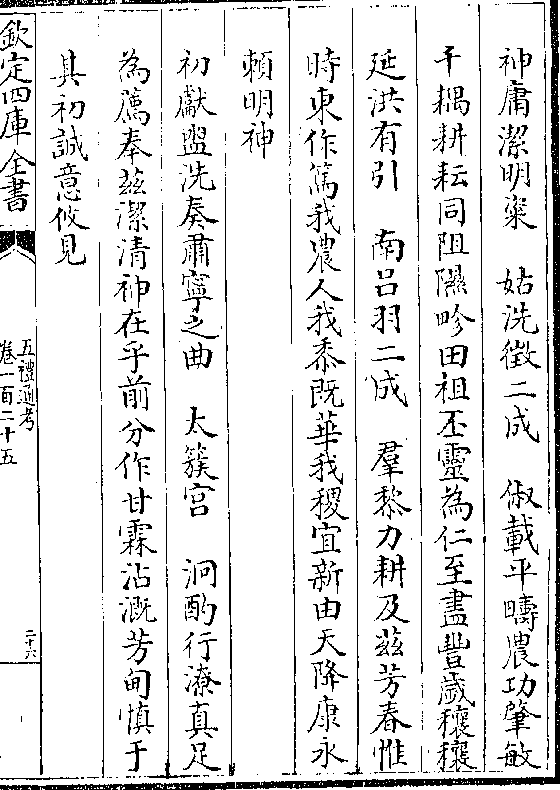 神庸潔明粢　姑洗徵二成　俶載平疇農功肇敏
千耦耕耘同阻隰畛田祖丕靈為仁至盡豐歲穰穰
延洪有引　南呂羽二成　羣黎力耕及茲芳春惟
時東作篤我農人我黍既華我稷宜新由天降康永
賴明神
初獻盥洗奏肅寧之曲　太簇宫　泂酌行潦真足
為薦奉茲潔清神在乎前分作甘霖沾溉芳甸慎于
其初誠意攸見
欽定四庫全書
五禮通考
卷一百二十五
二十六